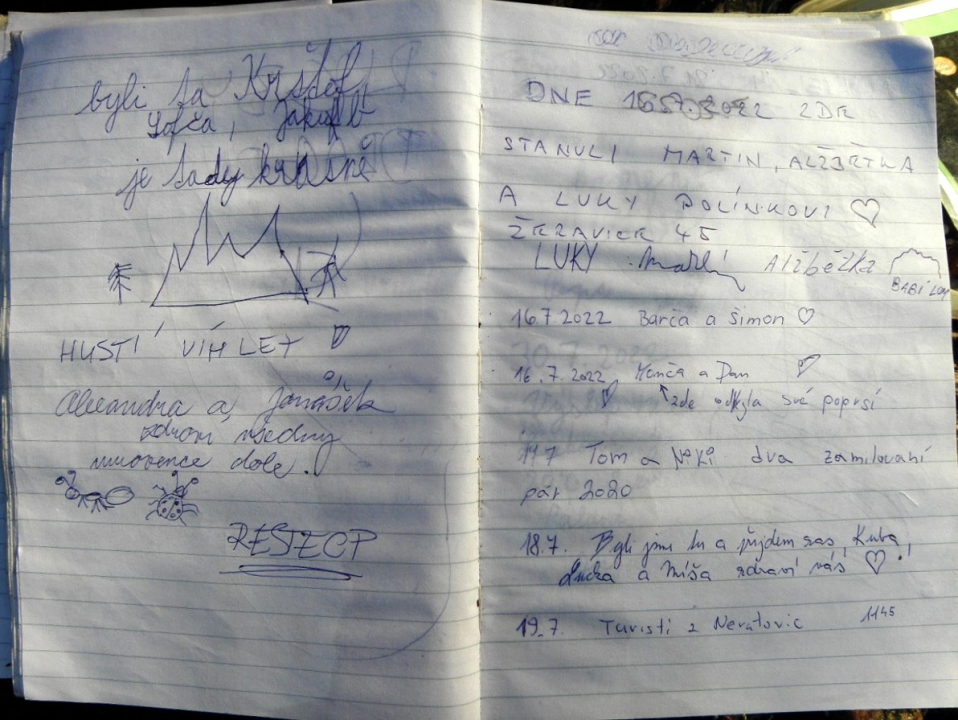 byli ta Krištof
Sofča, Jakub
je tady krásně
HUSTÍ VÍHLET
Alexandra a Jonášek
zdraví všedny
muvence dole.
RESTECP
DNE 16.7.2022 ZDE
STANULI MARTIN, ALŽBĚTKA
A LUKY POLÍNKOVI ♡
ŽERAVICE 45
LUKY Alžbětka
BABÍ LOM
16.7.2022 Barča a Šimon ♡
16.7.2022 a Dan
zde odkryla své poprsí
17.7 Tom a Niki dva zamilovaní
pár 2020
18.7. Byli jsme tu a přijdem zas, Kuba,
Lucka a Míša zdraví vás ♡!
19.7. Turisti z Neratovic 11 45